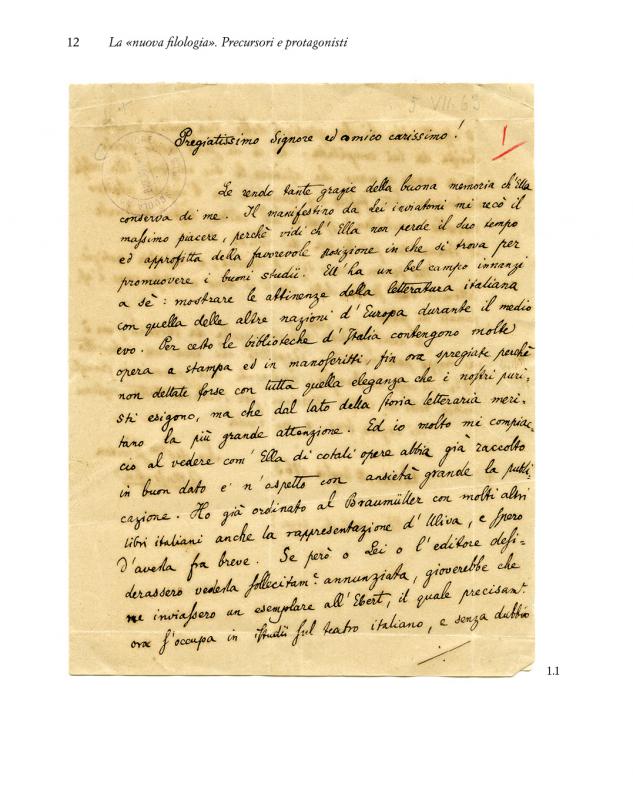 12 La «nuova filologia». Precursori e protagonisti
5 VII. 63
1
Pregiatissimo Signore ed amico carissimo!
Le rendo tante grazie della buona memoria ch'Ella
conserva di me. Il manifestino da Lei inviatomi mi recò il
massimo piacere, perchè vidi ch'Ella non perde il suo tempo
ed approfitta della favorevole posizione in che si trova per
promuovere i buoni studii. Ell'ha un bel campo innanzi
a sè: mostrare le attinenze della letteratura italiana
con quella delle altre nazioni d'Europa durante il medio
evo. Per certo le biblioteche d'Italia contengono molte
opera a stampa ed in manoscritti, fin ora spregiate perchè
non dettate forse con tutta quella eleganza che i nostri puri-
sti esigono, ma che dal lato della storia letteraria meri-
tano la più grande attenzione. Ed io molto mi compiac-
cio al vedere com'Ella di cotali opere abbia già raccolto
in buon dato e n'aspetto con ansietà grande la publi-
cazione. Ho già ordinato al Braumüller con molti altri
libri italiani anche la rappresentazione d'Uliva, e spero
d'averla fra breve. Se però o Lei o l'editore desi-
derassero vederla sollecitam.e annunziata, gioverebbe che
ne inviassero un esemplare all'Ebert, il quale precisam.e
ora s'occupa in studii sul teatro italiano, e senza dubbio
1.1